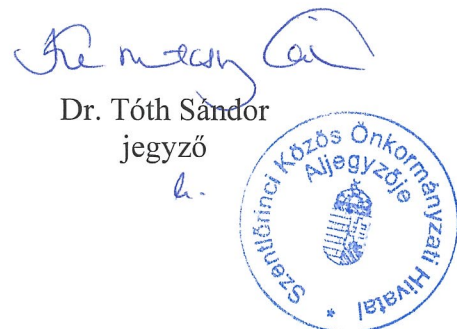 Dr. Tóth Sándor
jegyző
h.
Szentlőrinci Közös Önkormányzati Hivatal *
Aljegyzője